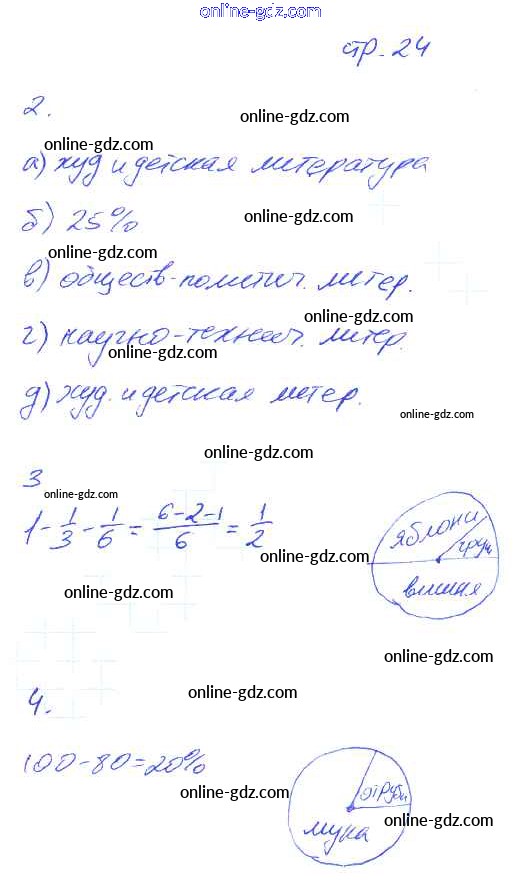 online-gdz.com
стр. 24
2.
online-gdz.com
online-gdz.com
а) худ и детская литература
online-gdz.com
б) 25%
online-gdz.com
в) обществ-политич. литер.
online-gdz.com
г) научно-технич. литер.
online-gdz.com
д) худ. и детская литер.
online-gdz.com
online-gdz.com
3
online-gdz.com
1 - 1/3 - 1/6 = (6-2-1)/6 = 1/2
яблони
груш
online-gdz.com
вишня
online-gdz.com
online-gdz.com
online-gdz.com
4.
100-80=20%
online-gdz.com
отруби
online-gdz.com
мука
online-gdz.com